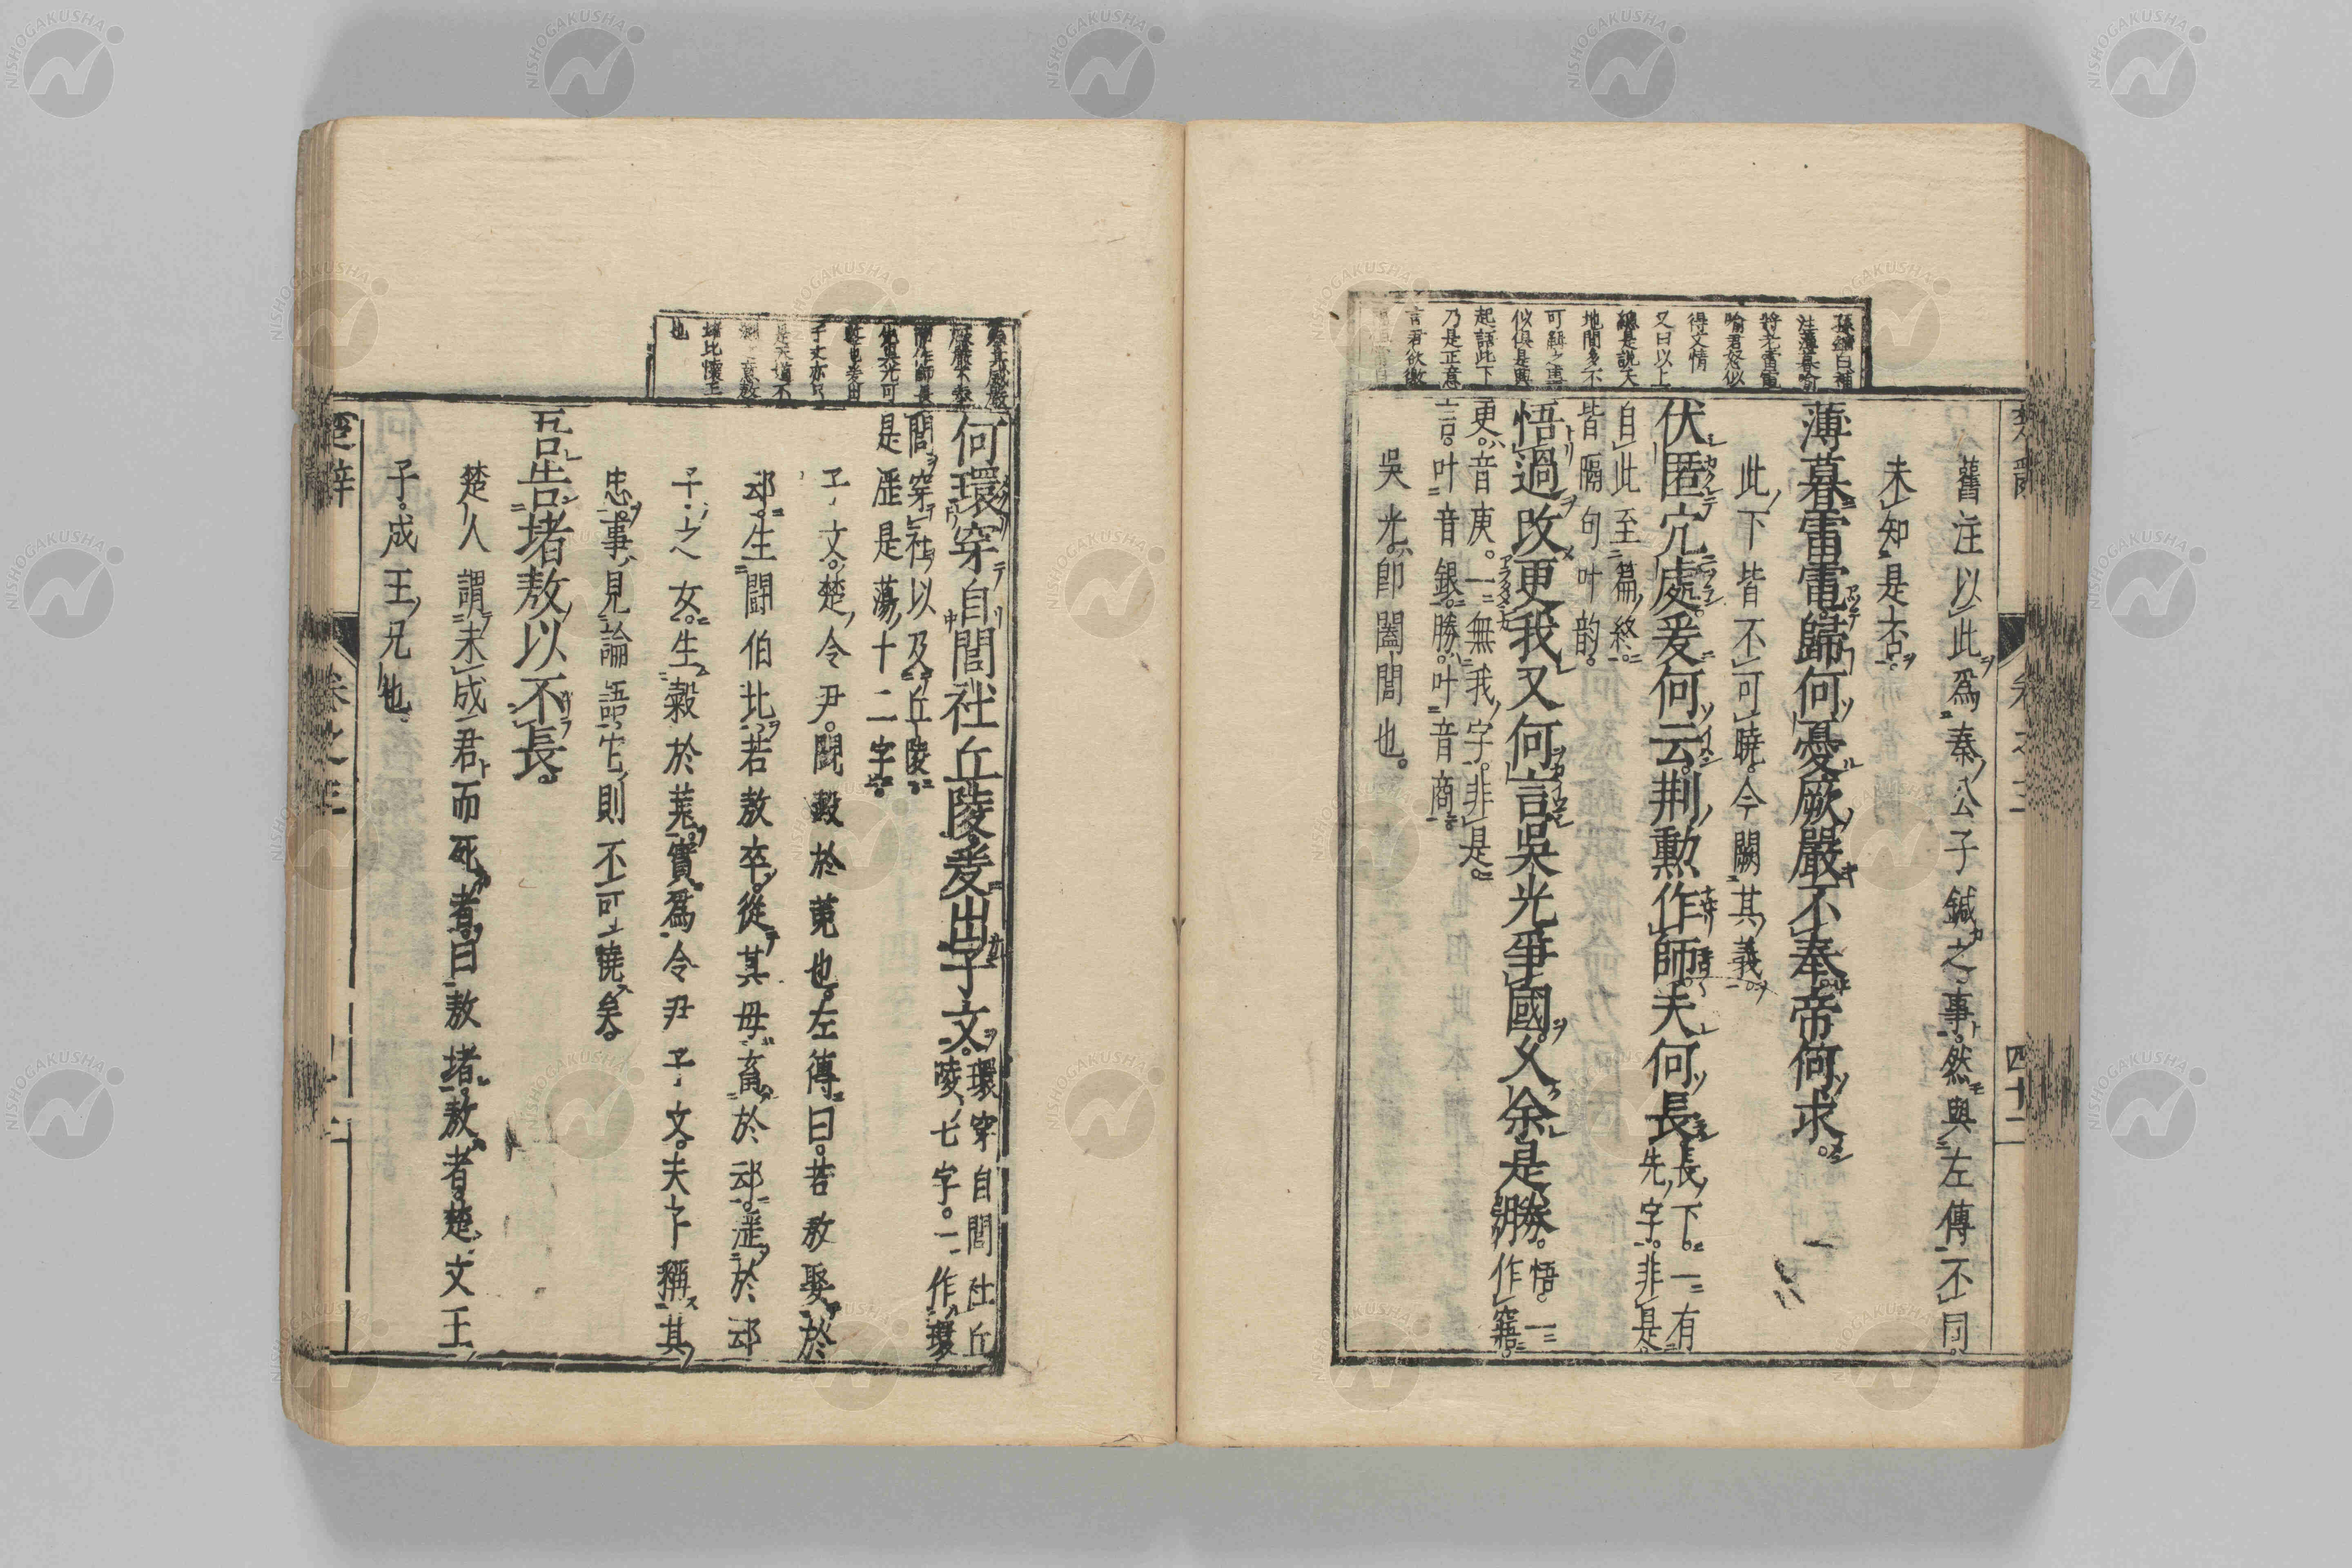 楚辭
卷之三
四十二
舊注以此爲秦公子鍼之事。然與左傳不同。
未知是否。
薄暮雷電歸何憂厥嚴不奉帝何求。
此下皆不可曉。今闕其義。
伏匿穴處爰何云。荆勲作師夫何長
長下。一有
先字。非是。
自此至篇終。
皆隔句叶韵。
悟過改更我又何言吳光爭國乆余是勝。
悟。一
作寤。
更。音庚。一無我字。非是。
言。叶音銀。勝。叶音商。
吳光。即闔閭也。
又曰以上
總是說天
地間多不
可解之事
似俱是興
起語此下
乃是正意
言君欲徵
何環穿自閭社丘陵爰出子文。
環穿自閭社丘
陵。七字。一作環
閭穿社以及丘陵。
是淫是蕩十二字。
子文。楚令尹。鬪穀於菟也。左傳曰。若敖娶於
䢵。生鬪伯比。若敖卒。從其母畜於䢵。淫於䢵
子之女。生穀於菟。實爲令尹子文。夫子稱其
忠。事見論語。它則不可曉矣。
吾告堵敖以不長。
楚人謂未成君而死者。曰敖。堵敖者。楚文王
子。成王兄也。
堵比懷王
也
楚辭
卷之三